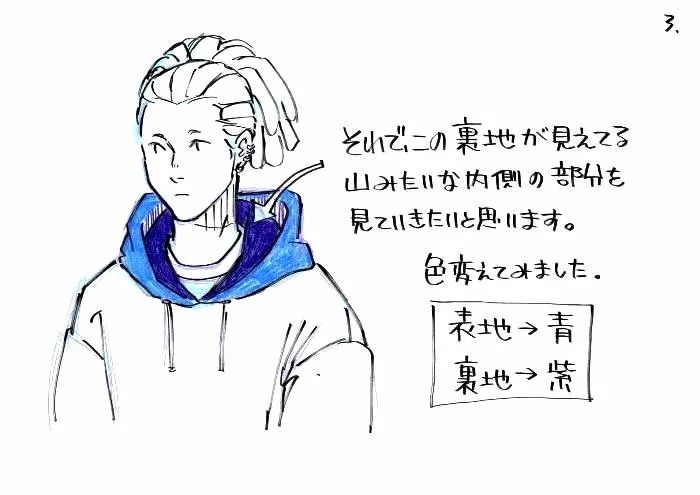 3.
それで、この裏地が見えてる
山みたいな内側の部分を
見ていきたいと思います。
色変えてみました.
表地→青
裏地→紫